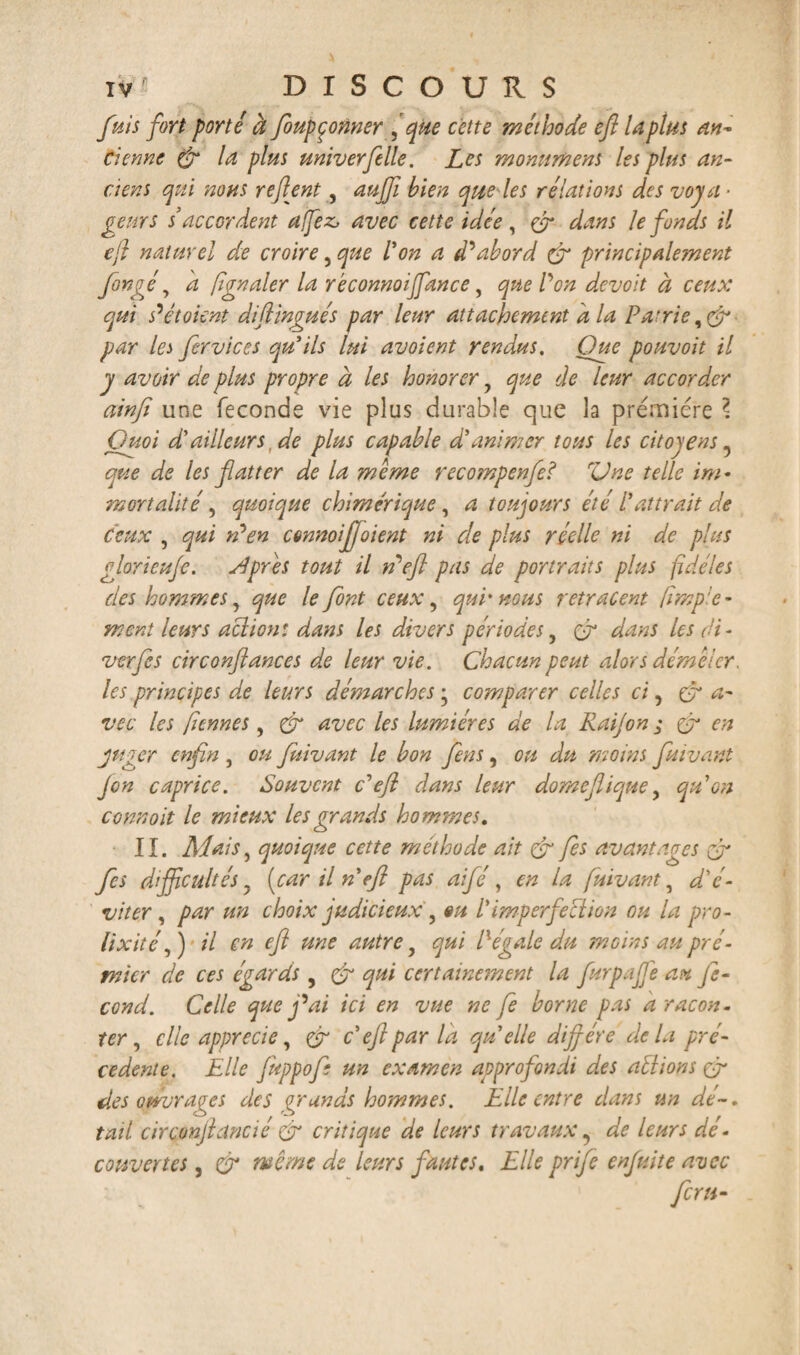 IV DISCOURS
ſuis fort porté à ſoupçonner, que cette méthode eſt la plus an-
cienne & la plus univerſelle. Les monumens les plus an-
ciens qui nous reſtent, auſſi bien que les rélations des voya-
geurs s'accordent aſſez avec cette idée, & dans le fonds il
eſt naturel de croire, que l'on a d'abord & principalement
ſongé, à ſignaler la réconnoiſſance, que l'on devoit à ceux
qui s'étoient diſtingués par leur attachement à la Patrie, &
par les ſervices qu'ils lui avoient rendus. Que pouvoit il
y avoir de plus propre à les honorer, que de leur accorder
ainſi une ſeconde vie plus durable que la prémiére?
Quoi d'ailleurs, de plus capable d'animer tous les citoyens,
que de les flatter de la même recompenſe? Une telle im-
mortalité, quoique chimérique, a toujours été l'attrait de
ceux, qui n'en connoiſſoient ni de plus réelle ni de plus
glorieuſe. Après tout il n'eſt pas de portraits plus fidéles
des hommes, que le ſont ceux, qui nous retracent ſimple-
ment leurs actions dans les divers périodes, & dans les di-
verſes circonſtances de leur vie. Chacun peut alors démêler
les principes de leurs démarches; comparer celles ci, & a-
vec les ſiennes, & avec les lumiéres de la Raiſon; & en
juger enfin, ou ſuivant le bon ſens, ou du moins ſuivant
ſon caprice. Souvent c'eſt dans leur domeſtique, qu'on
connoit le mieux les grands hommes.
II. Mais, quoique cette méthode ait & ſes avantages &
ſes difficultés, (car il n'eſt pas aiſé, en la ſuivant, d'é-
viter, par un choix judicieux, ou l'imperfection ou la pro-
lixité,) il en eſt une autre, qui l'égale du moins au pré-
mier de ces égards, & qui certainement la ſurpaſſe au ſe-
cond. Celle que j'ai ici en vue ne ſe borne pas à racon-
ter, elle apprecie, & c'eſt par là qu'elle différe de la pré-
cedente. Elle ſuppoſe un examen approfondi des actions &
des ouvrages des grands hommes. Elle entre dans un dé-
tail circonſtancié & critique de leurs travaux, de leurs dé-
couvertes, & même de leurs fautes. Elle priſe enſuite avec
ſcru-